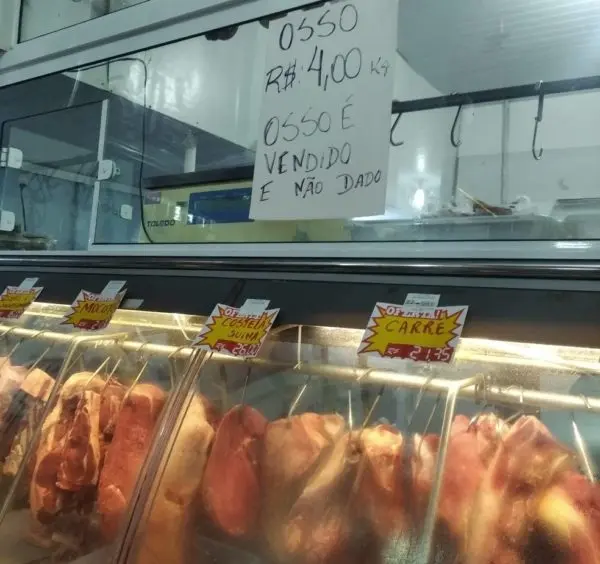 OSSO
R$: 4,00 Kg
OSSO É
VENDIDO
E NÃO DADO
TOLEDO
OFERTA!!
COSTELA
SUINA
OFERTA!!
CARRE
21,75